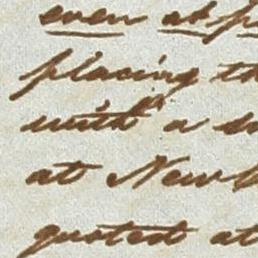 even at p
placing th
with a s
at New
quoted at